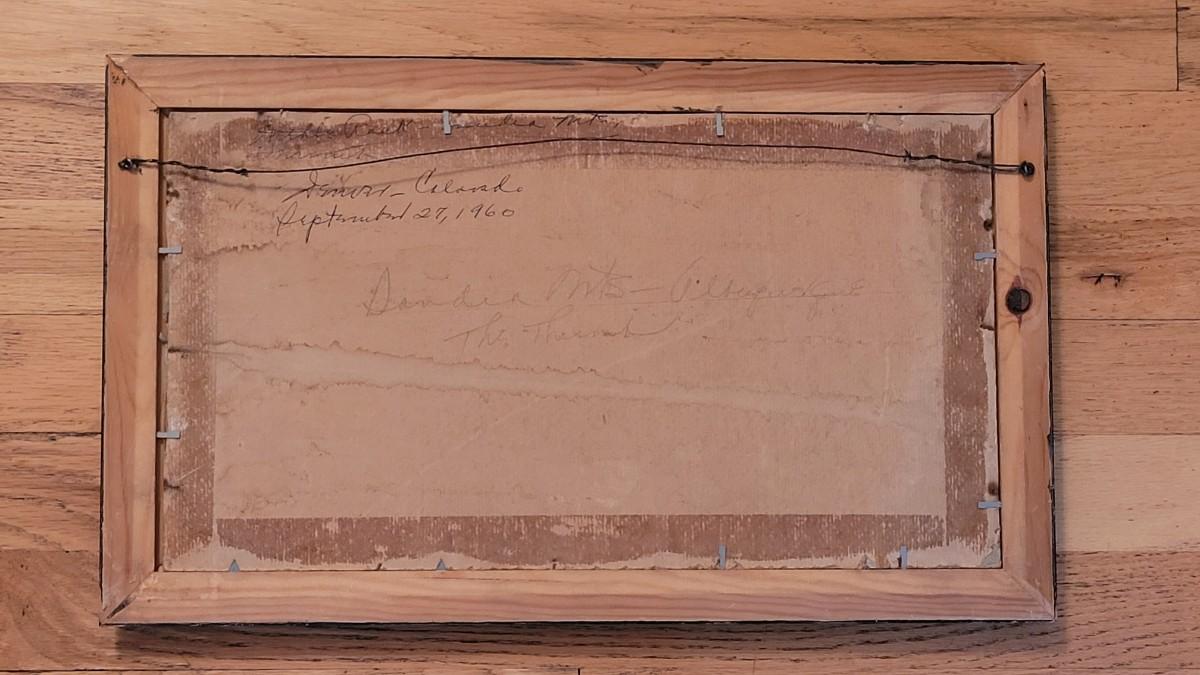 Sandia Mts
Denver - Colorado
September 27, 1960
Sandia Mts - Albuquerque
The Thumb